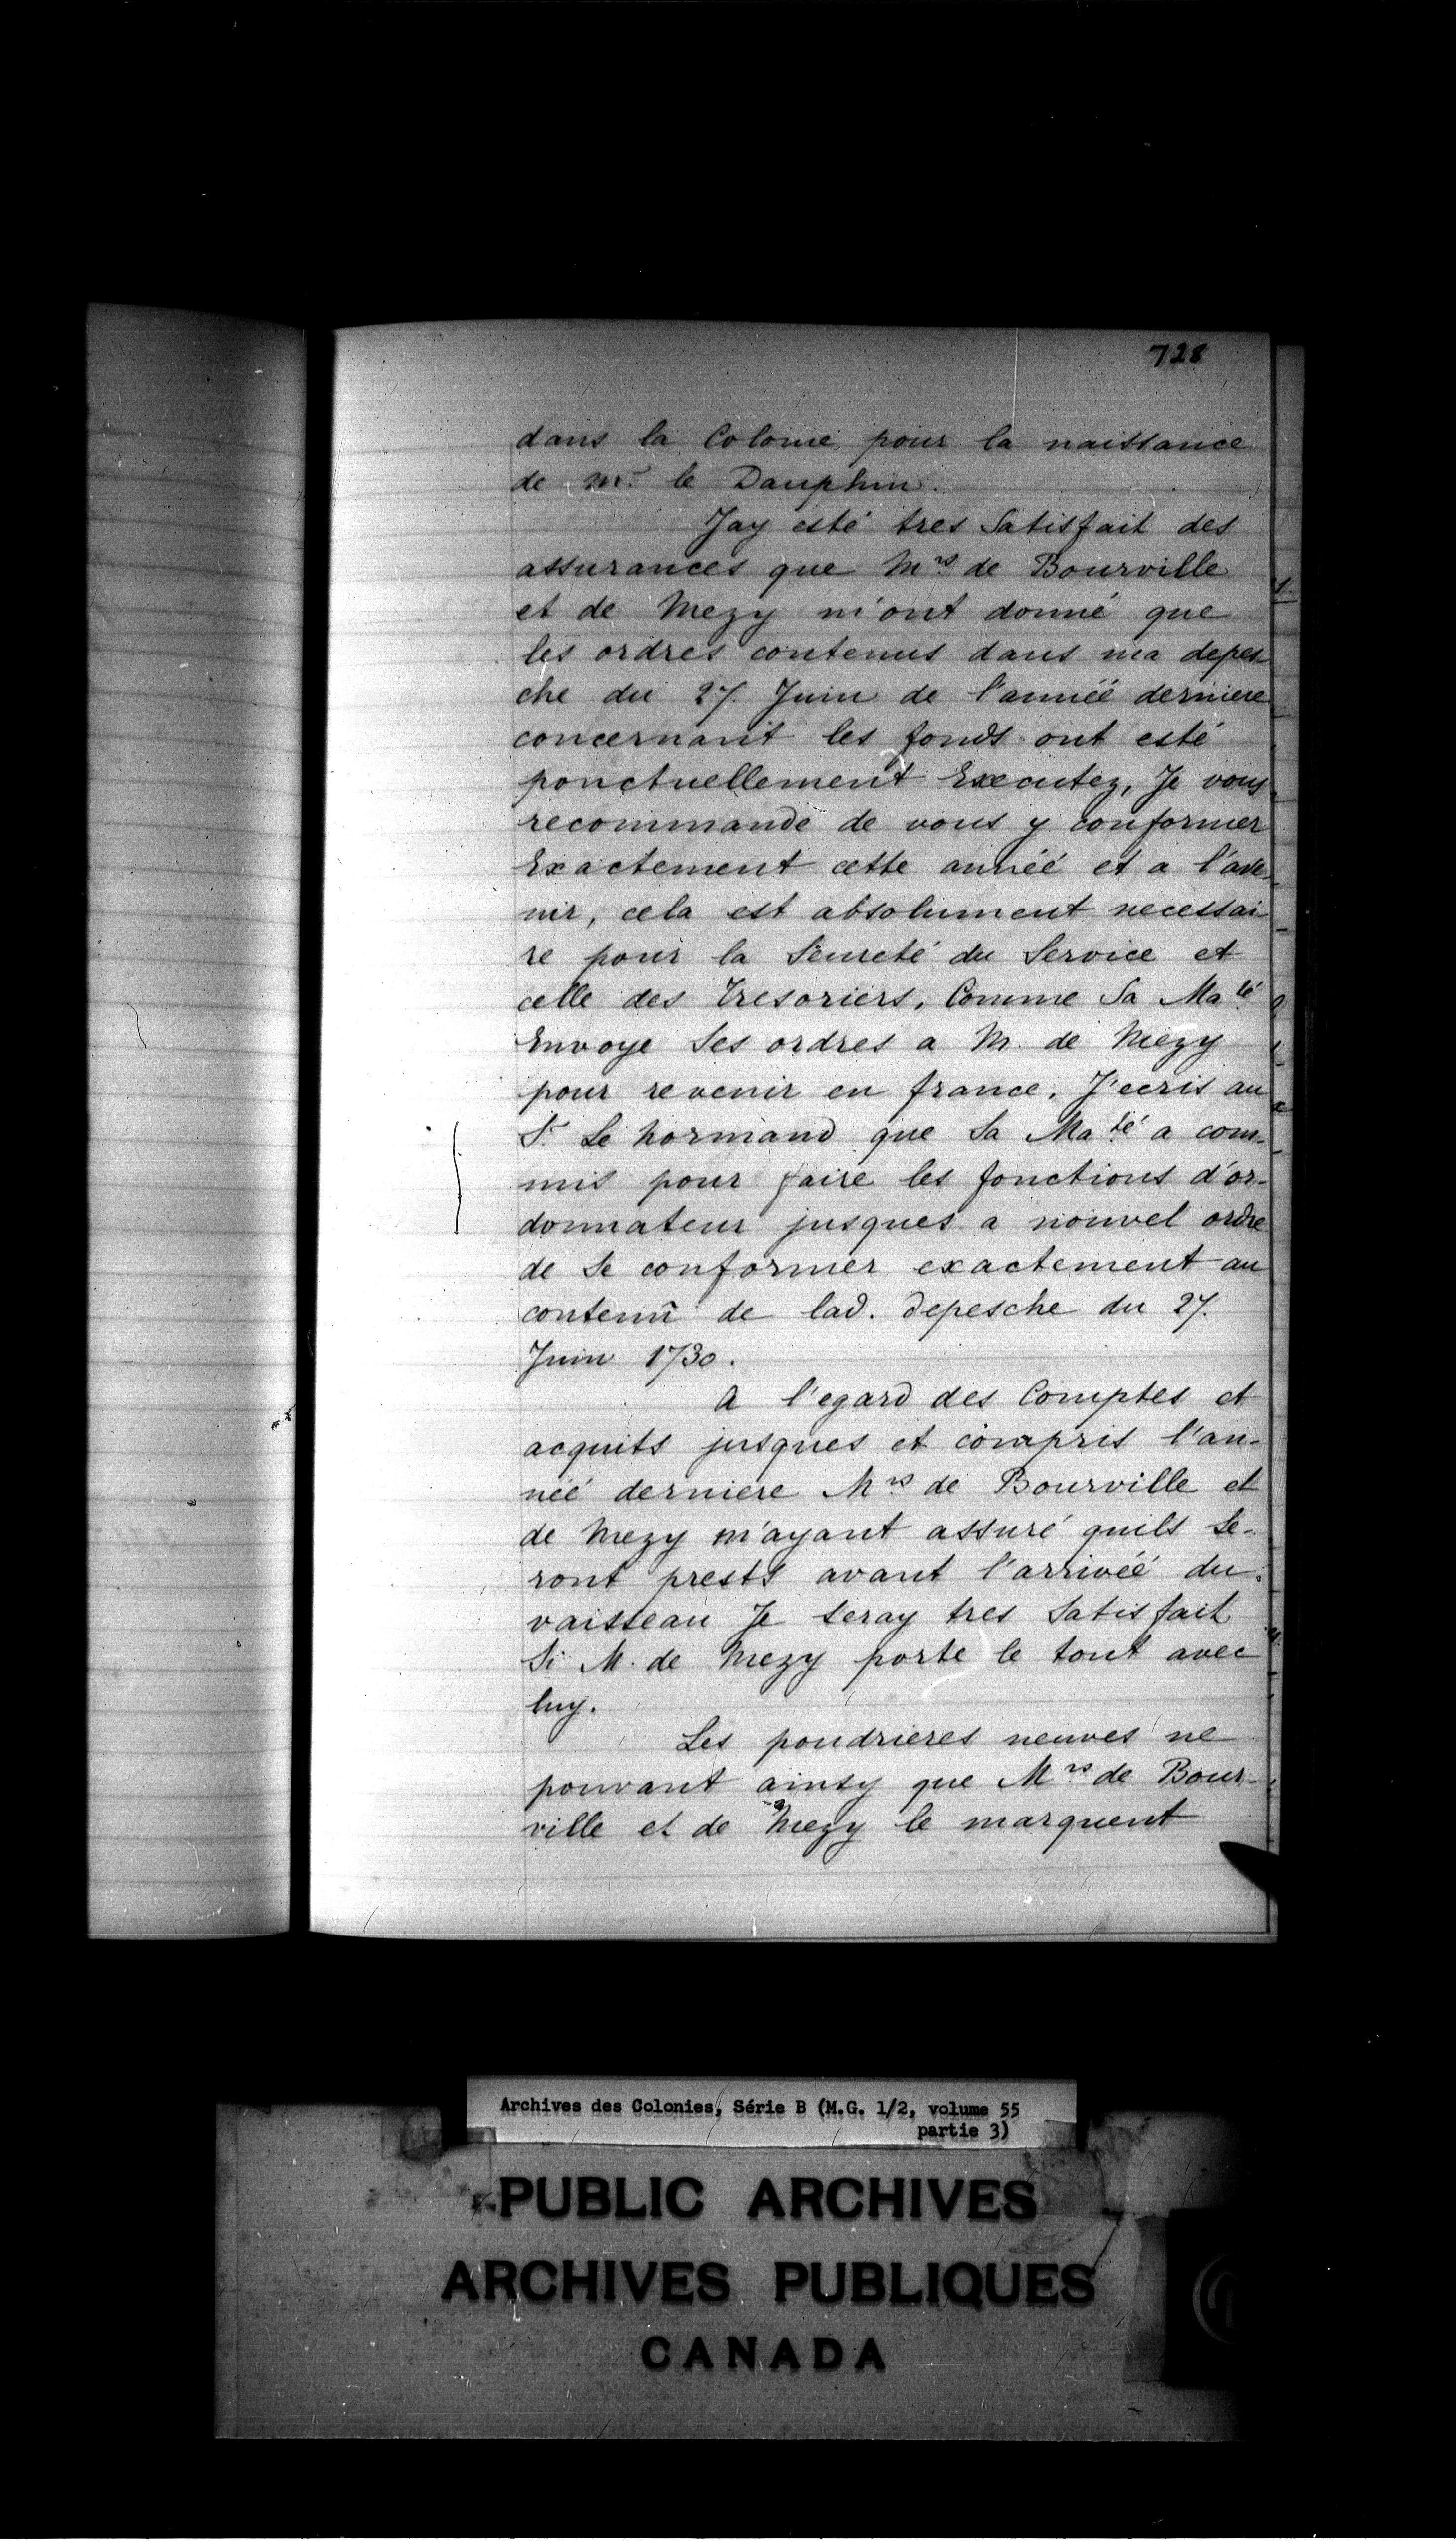 728
dans la Colonie pour la naissance
de Mr. le Dauphin.
Jay esté tres Satisfait des
assurances que Mrs. de Bourville
et de Mezy m'ont donné que
les ordres contenus dans ma depes-
che du 27. Juin de l'année derniere
concernant les fonds ont esté
ponctuellement Executez, Je vous
recommande de vous y conformer
Exactement cette année et a l'ave-
nir, cela est absolument necessai-
re pour la Seureté du Service et
celle des Tresoriers. Comme Sa Maté
Envoye Ses ordres a M. de Mezy
pour revenir en france. J'ecris au
Sr Le Normand que Sa Maté a com-
mis pour faire les fonctions d'or-
donnateur jusques a nouvel ordre
de Se conformer exactement au
contenu de lad. depesche du 27.
Juin 1730.
A l'egard des Comptes et
acquits jusques et compris l'an-
née derniere Mrs. de Bourville et
de Mezy m'ayant assuré quils Se-
ront prests avant l'arrivée du
vaisseau Je Seray tres Satisfait
Si M. de Mezy porte le tout avec
luy.
Les poudrieres neuves ne
pouvant ainsy que Mrs. de Bour-
ville et de Mezy le marquent
Archives des Colonies, Série B (M.G. 1/2, volume 55
partie 3)
PUBLIC ARCHIVES
ARCHIVES PUBLIQUES
CANADA